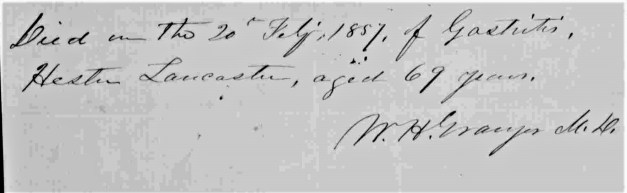 Died on the 20th Feby, 1857, of Gastritis,
Hester Lancaster, aged 69 years.
W. H. Granger M. D.